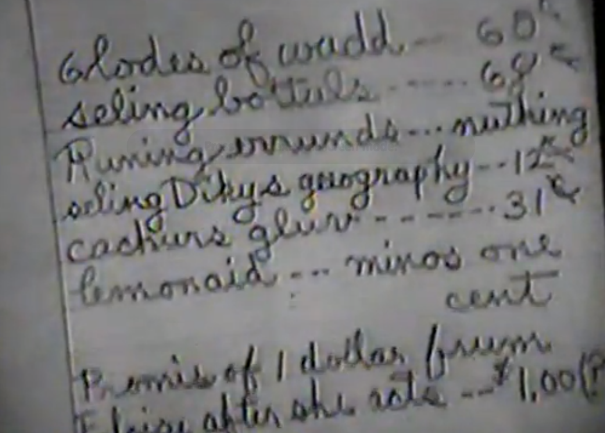 6 lodes of wudd -- 60¢
seling bo'tuls ----- 68¢
Runing errunds --- nuthing
seling Dikys geography -- 12¢
cachurs gluv ------- 31¢
lemonaid --- minos one
cent
Promis of 1 dollar frum
after she acts --- $1.00(?